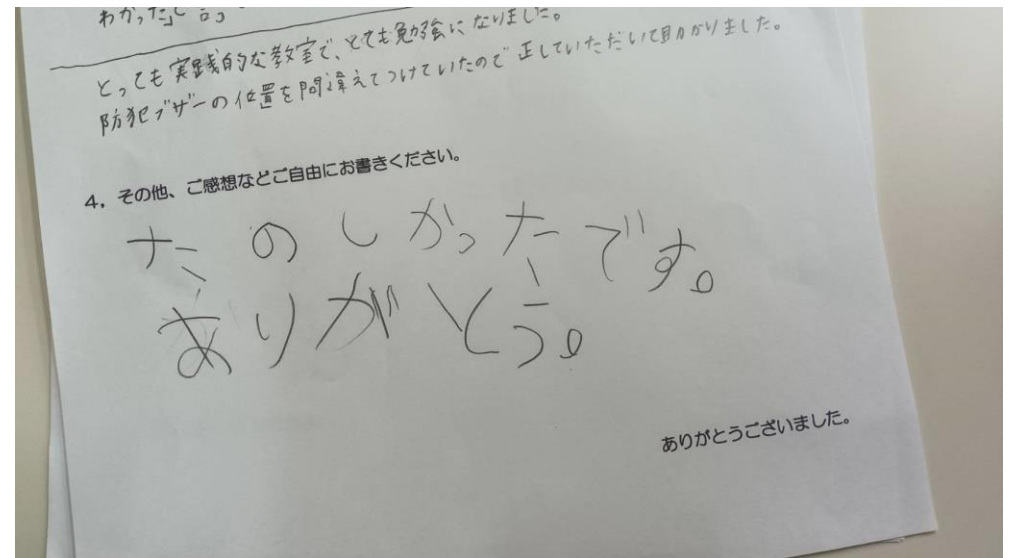 わかった」と言
とっても実践的な教室で、とても勉強になりました。
防犯ブザーの位置を間違えてつけていたので正していただいて助かりました。
4. その他、ご感想などご自由にお書きください。
たのしかったです。
ありがとう。
ありがとうございました。